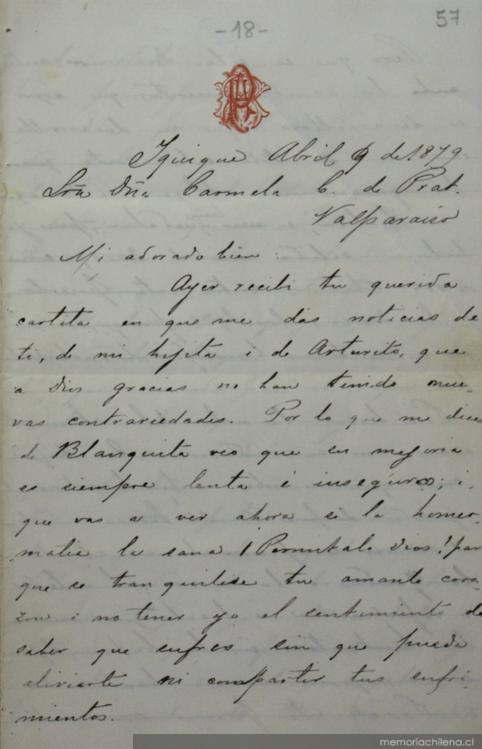 57
-18-
Iquique Abril 9 de 1879
Sra Dña Carmela C. de Prat.
Valparaiso
Mi adorado bien:
Ayer recibi tu querida
cartita en que me das noticias de
ti, de mi hijita i de Arturito, que
a Dios gracias no han tenido nue-
vas contrariedades. Por lo que me dices
de Blanquita veo que su mejoria
es siempre lenta é insegura; i,
que vas a ver ahora si la homeo-
matia la sana ¡Permitalo Dios! par
que se tranquilise tu amante cora-
zon i no tener yo el sentimiento de
saber que sufres sin que pueda
aliviarte ni compartir tus sufri-
mientos.
memoriachilena.cl